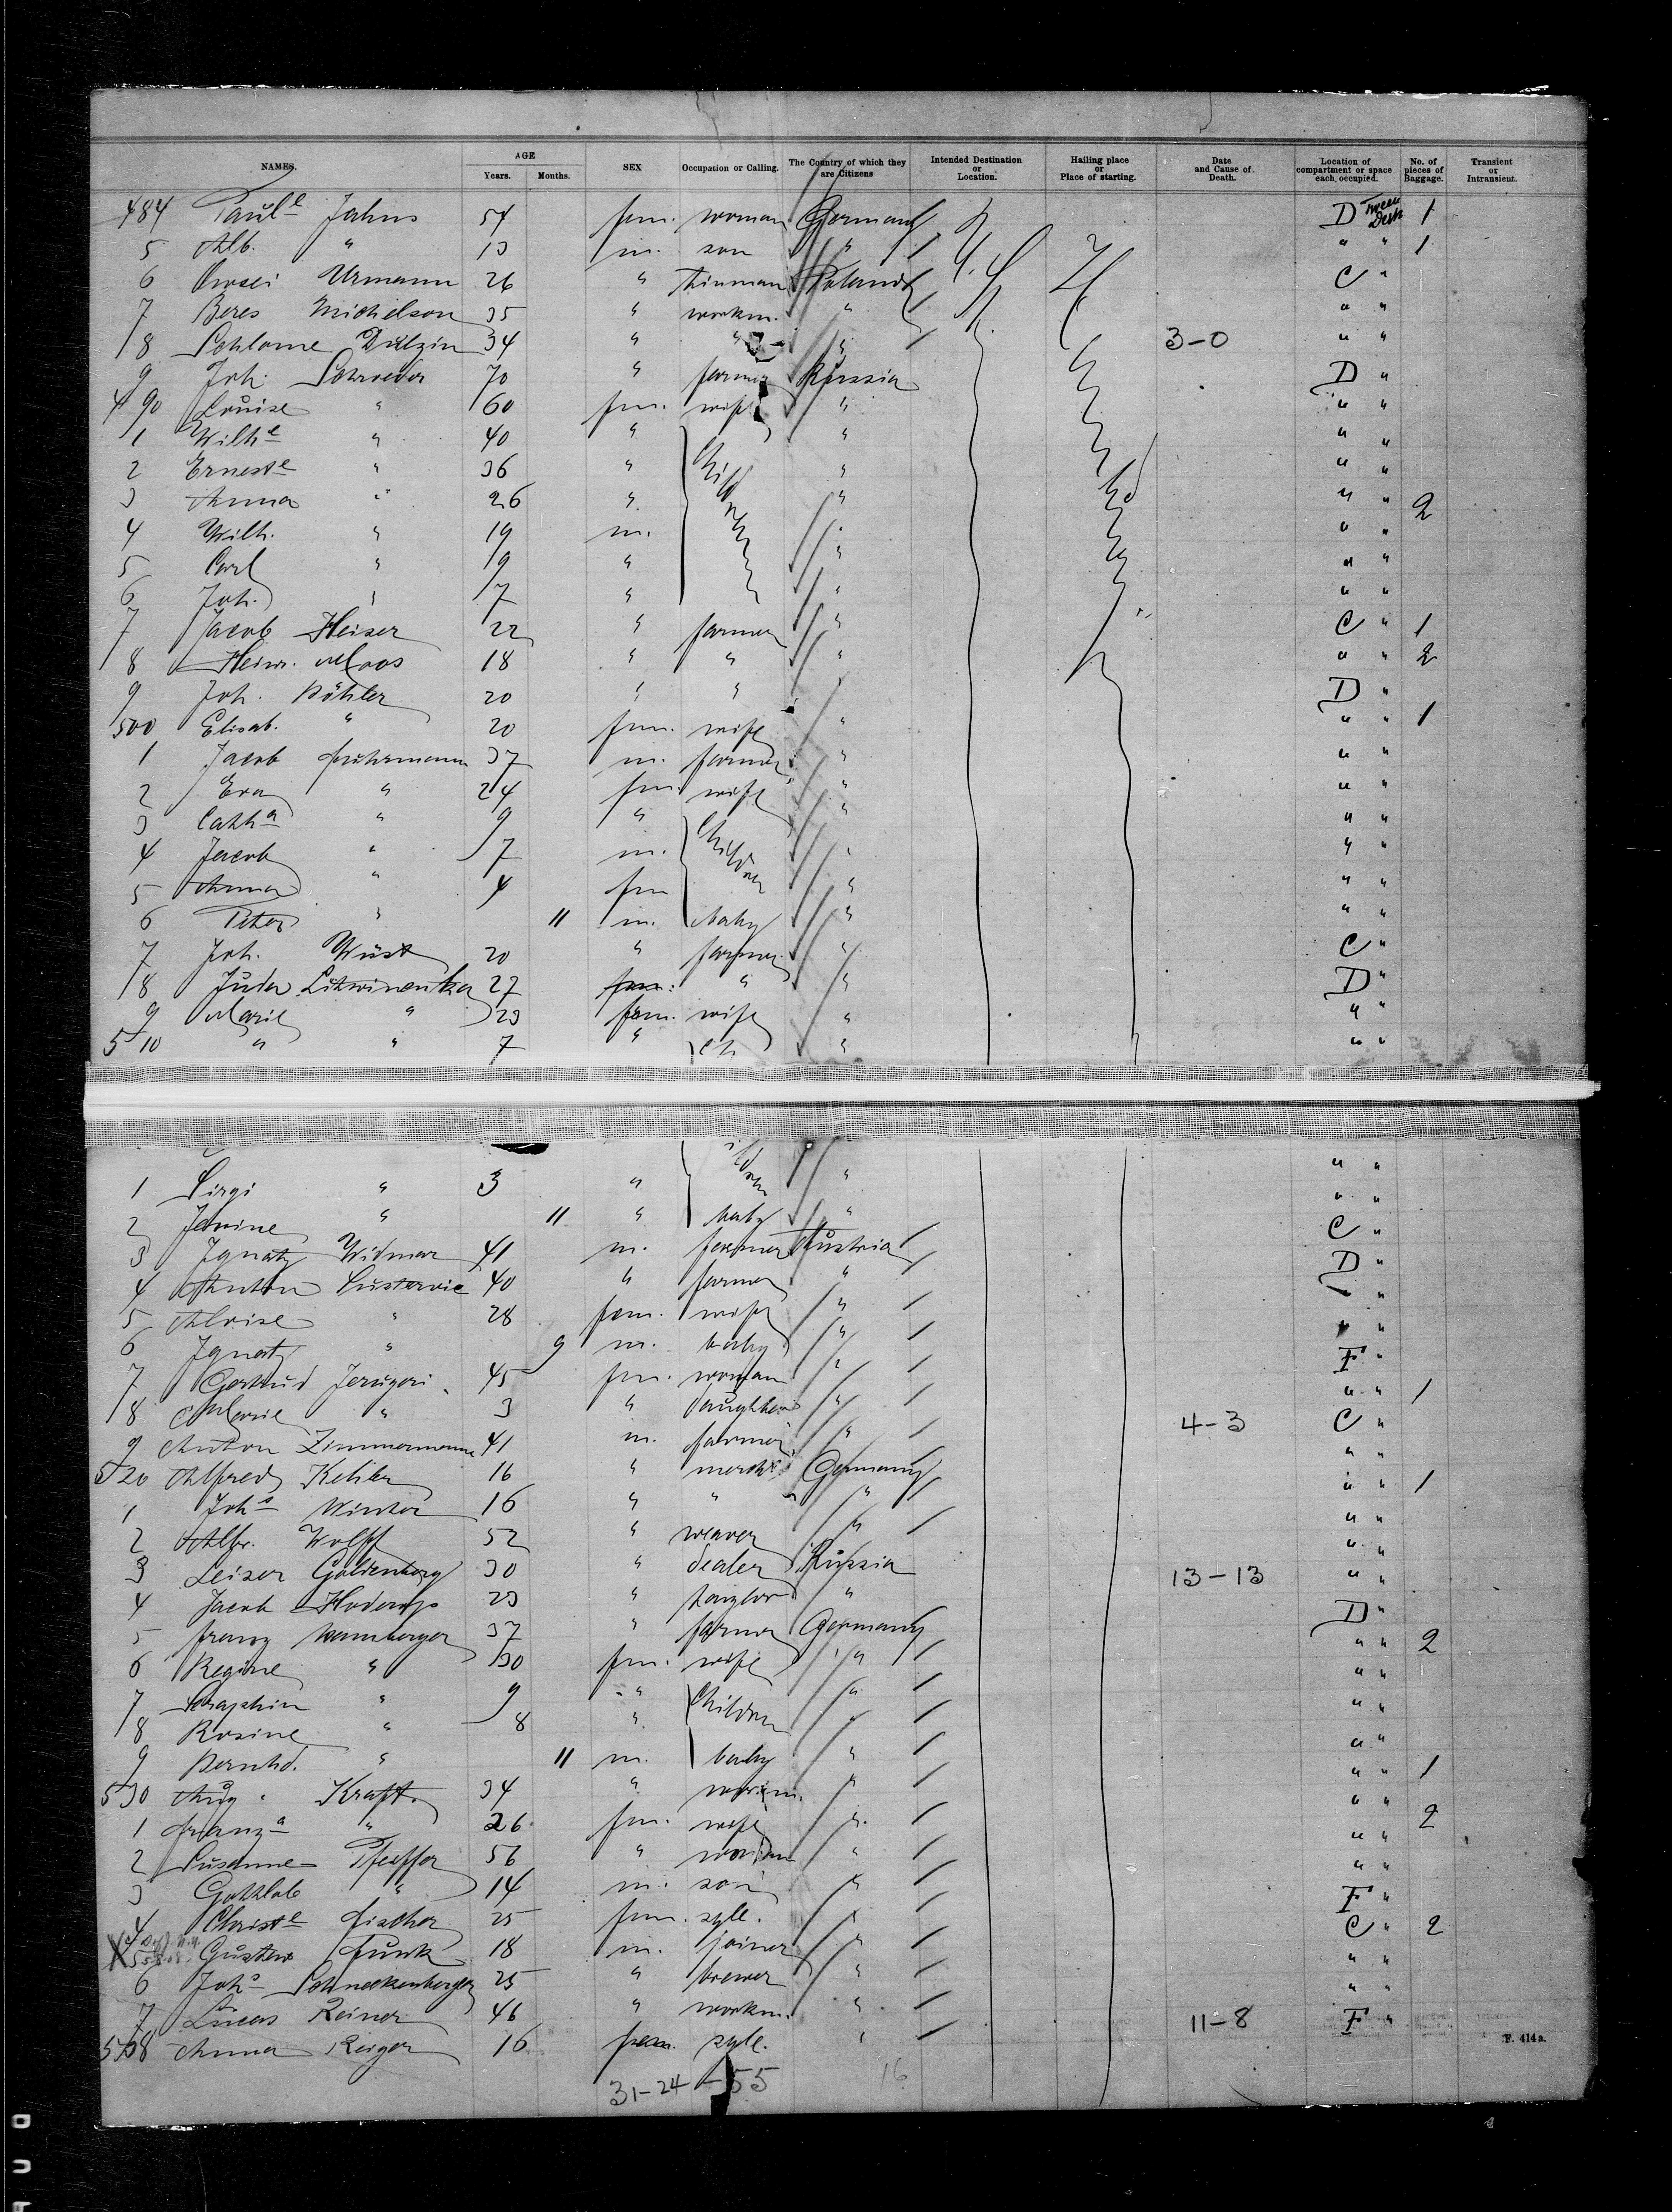 NAMES. AGE Years. Months. SEX Occupation or Calling. The Country of which they are Citizens Intended Destination or Location. Hailing place or Place of starting. Date and Cause of Death. Location of compartment or space each occupied. No. of pieces of Baggage. Transient or Intransient.
484 Paul^e Jahns 54 fm. woman Germany D Tween Deck 1
5 Alb. " 13 m. son " " " 1
6 Urmann 26 " tinman Poland C "
7 Beres Michelson 35 " workm. " " "
8 Schlome 34 " " " 3-0 " "
9 Joh. Schroeder 70 " farmer Russia D "
490 Louise " 60 fm. wife " " "
1 Wilh^e " 40 " Children " " "
2 Ernest^e " 36 " " " "
3 Anna " 26 " " " " 2
4 Wilh. " 19 m. " " "
5 Carl " 9 " " " "
6 Joh. " 7 " " " "
7 Jacob Heiser 22 " farmer " C " 1
8 Heinr. Moos 18 " " " " " 2
9 Joh. Böhler 20 " " " D "
500 Elisab. " 20 fm. wife " " " 1
1 Jacob Fuhrmann 37 m. farmer " " "
2 Eva " 24 fm. wife " " "
3 Cath^a " 9 " Children " " "
4 Jacob " 7 m. " " "
5 Anna " 4 fm " " "
6 Peter " 11 m. baby " " "
7 Joh. Wüst 20 " farmer " C "
8 Juda Litwinenka 27 fm. " " D "
9 Marie " 23 fem. wife " " "
510 " " 7 " ch " " "
1 " 3 " " " "
2 " 11 " baby " " "
3 Ignatz Widmar 41 m. farmer Austria C "
4 Anton 40 " farmer " D "
5 Aloise " 28 fem. wife " " "
6 Ignatz " 9 m. baby " " "
7 Gertrud 45 fm. woman " F "
8 Marie " 3 " daughter " " " 1
9 Anton Zimmermann 41 m. farmer " 4-3 C "
520 Alfred 16 " mercht Germany " "
1 Joh^s Winter 16 " " " " " 1
2 Albr. Wolff 52 " weaver " " "
3 Leiser Goldenberg 30 " dealer Russia " "
4 Jacob 23 " " 13-13 " "
5 Franz Wamberger 37 " farmer Germany D "
6 Regine " 30 fm. wife " " " 2
7 Seraphin " 9 " Children " " "
8 Rosine " 8 " " " "
9 Bernhd. " 11 m. baby " " "
530 Aug. Kraft. 34 " workm. " " " 1
1 Franz^a " 26 fm. wife " " "
2 Susanne Pfeiffer 56 " woman " " " 2
3 Gottlob " 14 m. son " " "
4 Christ^e Fischer 25 fm. sgle. " F "
Gustav Funk 18 m. joiner " C " 2
6 Joh^s Schneckenberger 25 " brewer " " "
7 Lucas Reiner 46 " workm. " " "
538 Anna Reiger 16 fem. sgle. " 11-8 F "
F. 414 a.
31-24-55 16